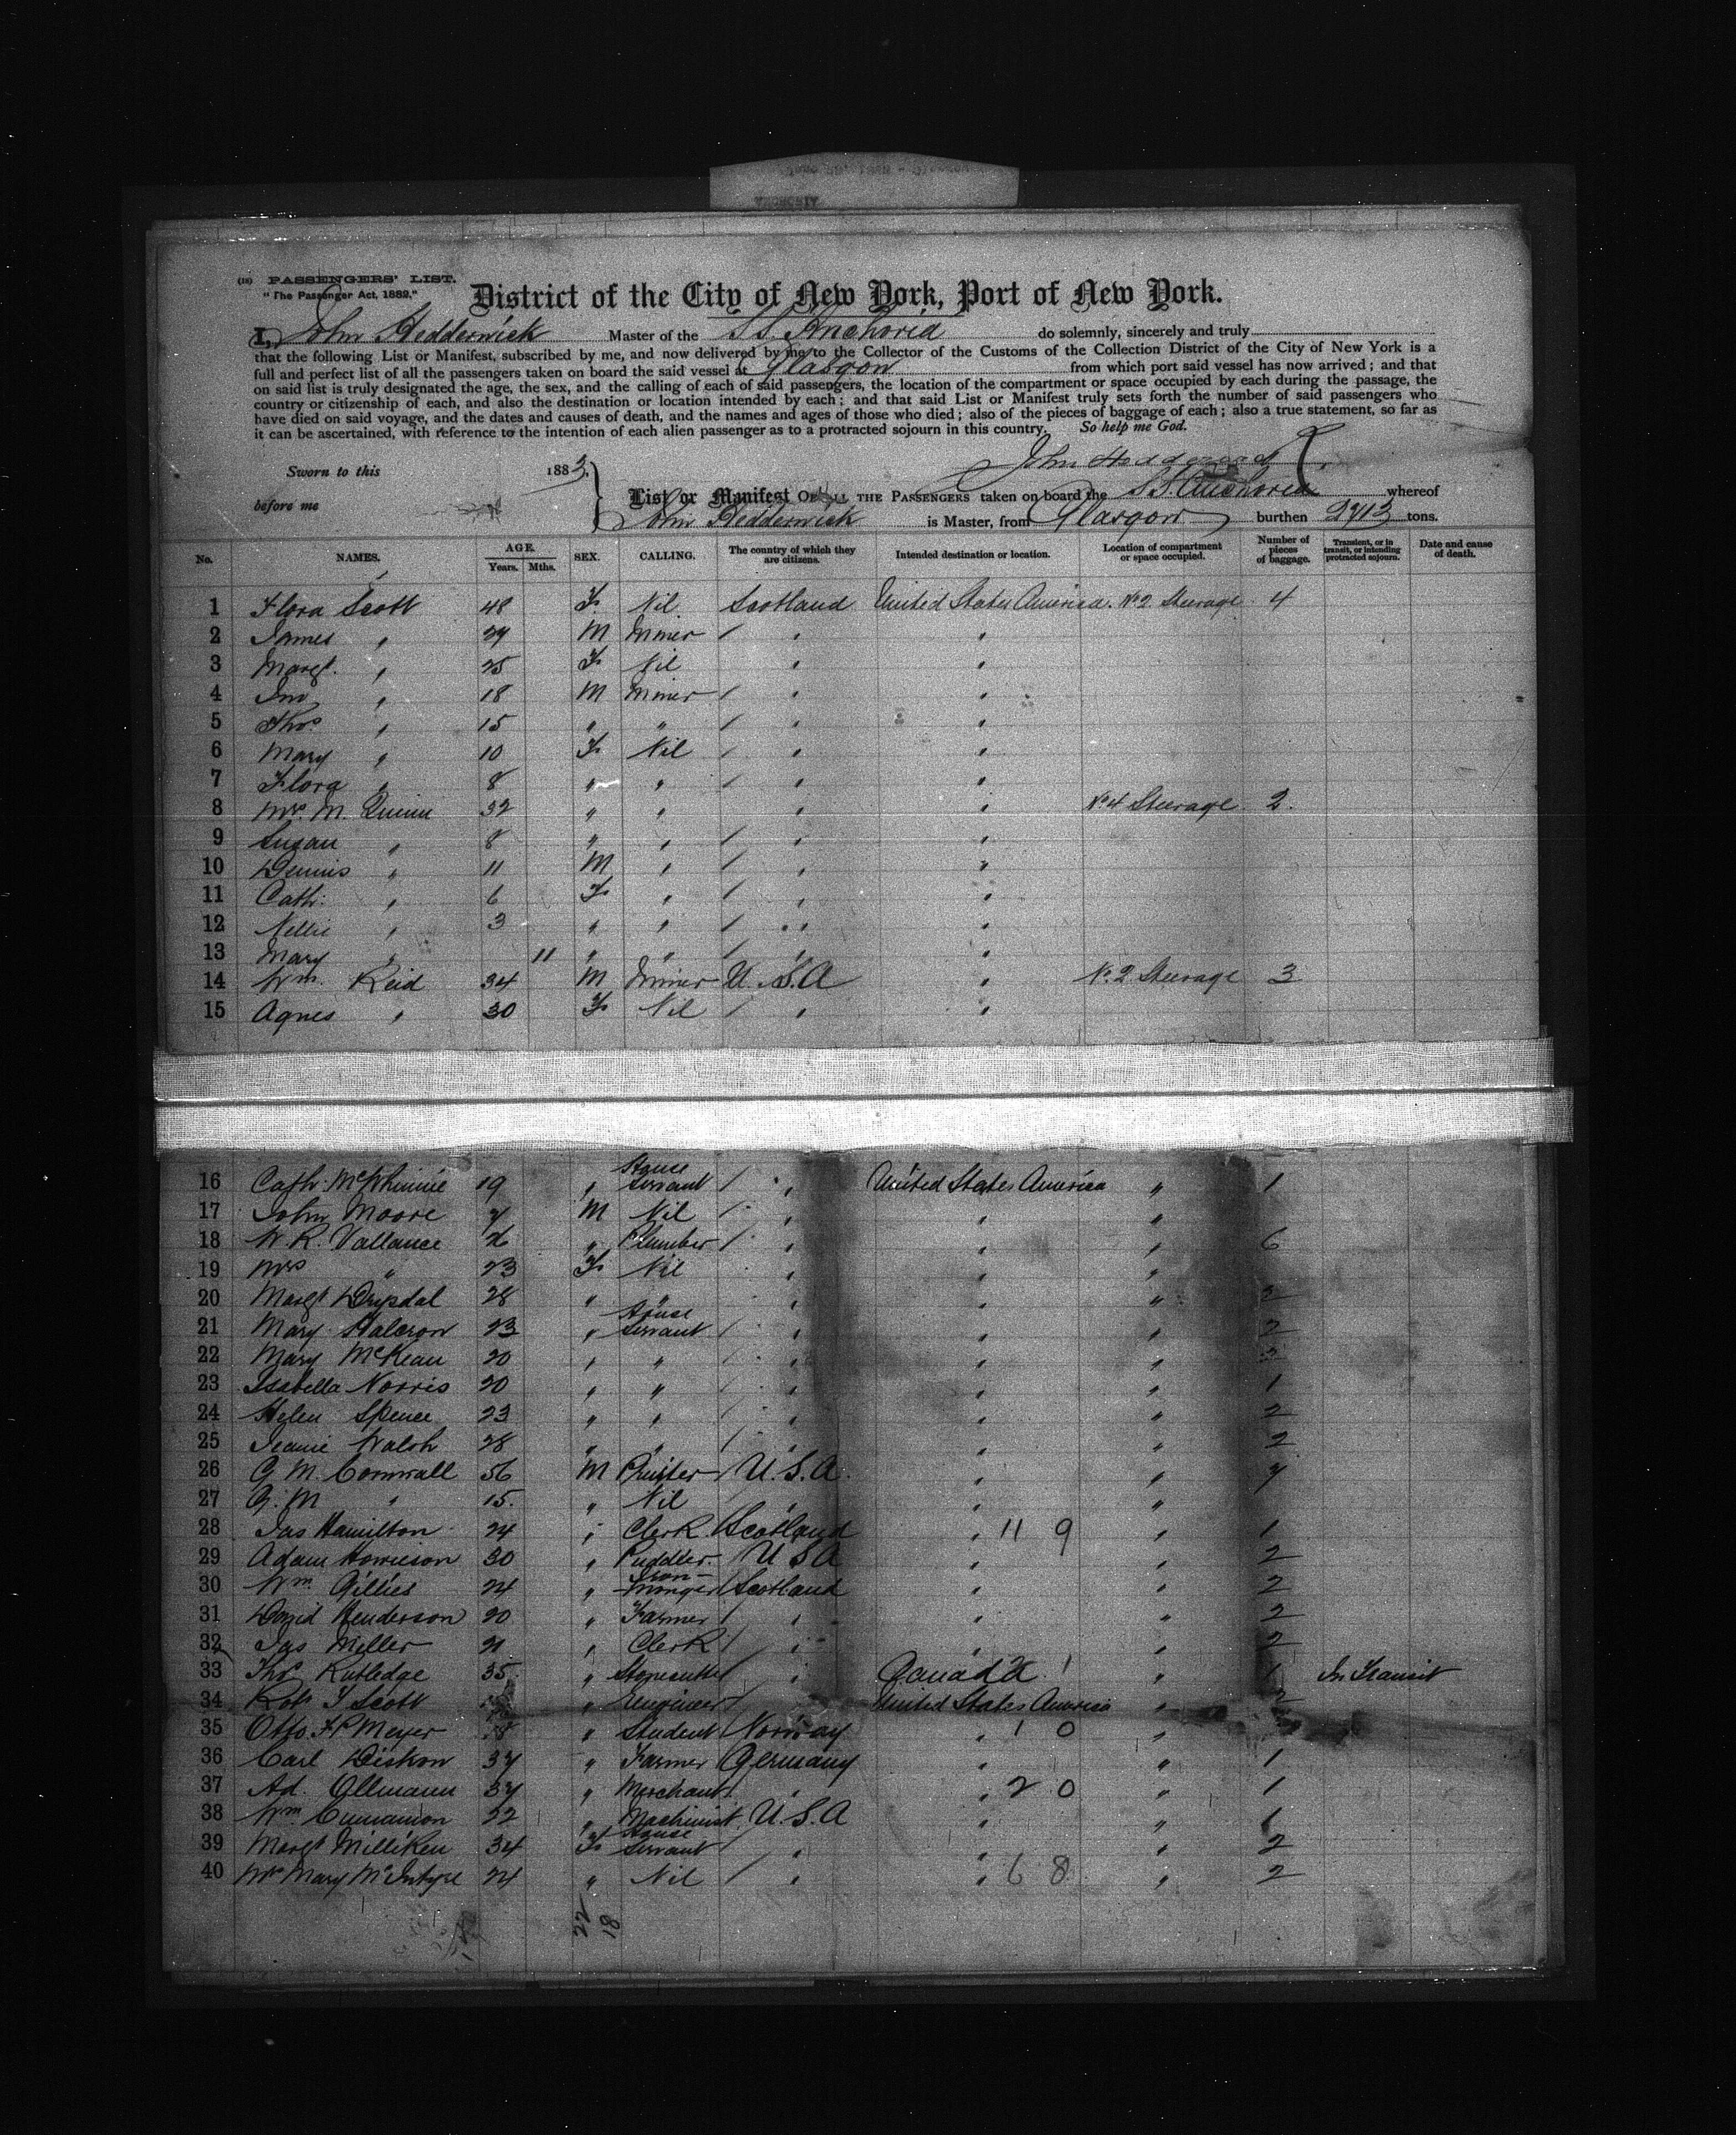 (18) PASSENGERS' LIST.
"The Passenger Act, 1882."
District of the City of New York, Port of New York.
I, John Hedderwick Master of the S.S. Anchoria do solemnly, sincerely and truly
that the following List or Manifest, subscribed by me, and now delivered by me to the Collector of the Customs of the Collection District of the City of New York is a
full and perfect list of all the passengers taken on board the said vessel at Glasgow from which port said vessel has now arrived; and that
on said list is truly designated the age, the sex, and the calling of each of said passengers, the location of the compartment or space occupied by each during the passage, the
country or citizenship of each, and also the destination or location intended by each; and that said List or Manifest truly sets forth the number of said passengers who
have died on said voyage, and the dates and causes of death, and the names and ages of those who died; also of the pieces of baggage of each; also a true statement, so far as
it can be ascertained, with reference to the intention of each alien passenger as to a protracted sojourn in this country. So help me God.
John Hedderwick
Sworn to this 1883.
before me
List or Manifest OF ALL THE PASSENGERS taken on board the S.S. Anchoria whereof
John Hedderwick is Master, from Glasgow burthen 2713 tons.
No. NAMES. AGE. Years. Mths. SEX. CALLING. The country of which they are citizens. Intended destination or location. Location of compartment or space occupied. Number of pieces of baggage. Transient, or in transit, or intending protracted sojourn. Date and cause of death.
1 Flora Scott 48 F Nil Scotland United States America. No 2 Steerage 4
2 James " 29 M Miner / " "
3 Margt. " 25 F Nil " "
4 Jno " 18 M Miner / " "
5 Thos " 15 " " / " "
6 Mary " 10 F Nil / " "
7 Flora " 8 " " / " "
8 Mrs. M. Quinn 32 " " " " No 4 Steerage 2.
9 Susan " 8 " " / " "
10 Dennis " 11 M " / " "
11 Cath: " 6 F " / " "
12 Nellie " 3 " " / " "
13 Mary " 11 " " / " "
14 Wm. Reid 34 M Miner U.S.A " No. 2 Steerage 3
15 Agnes " 30 F Nil / " "
16 Cath: McWhinnie 19 " House Servant / " United States America " 1
17 John Moore 7 M Nil / " " "
18 W R. Vallance 26 " Plumber / " " " 6
19 Mrs " 23 F Nil " " "
20 Margt Drysdal 28 " " " " " 2
21 Mary Halcron 23 " House Servant / " " " 2
22 Mary McKean 20 " " / " " " 2
23 Isabella Norris 20 " " / " " " 1
24 Helen Spence 23 " " / " " " 2
25 Jeanie Walsh 28 " " / " " " 2
26 G M. Cornwall 56 M Printer / U.S.A. " " 7
27 G. M " 15. " Nil / " " "
28 Jas Hamilton 24 " Clerk Scotland " 11 9 " 1
29 Adam Howieson 30 " Puddler / U S A " " 2
30 Wm. Gillies 24 " Iron-monger Scotland " " 2
31 David Henderson 20 " Farmer / " " " 2
32 Jas Miller 21 " Clerk / " " " 2
33 Thos Rutledge 35 " Stonecutter / " Canada 1 " 1 In Transit
34 Robt Y Scott " Engineer / United States America " 2
35 Otto F P Meyer " Student Norway " 1 0 "
36 Carl Diskon 37 " Farmer Germany " " 1
37 Ad. Ollmann 37 " Merchant " " 2 0 " 1
38 Wm. Cunnamon 22 " Machinist U.S.A " " 1
39 Margt Milliken 34 F House Servant / " " " 2
40 Mrs Mary McIntyre 24 " Nil / " " 6 8 " 2
22
18